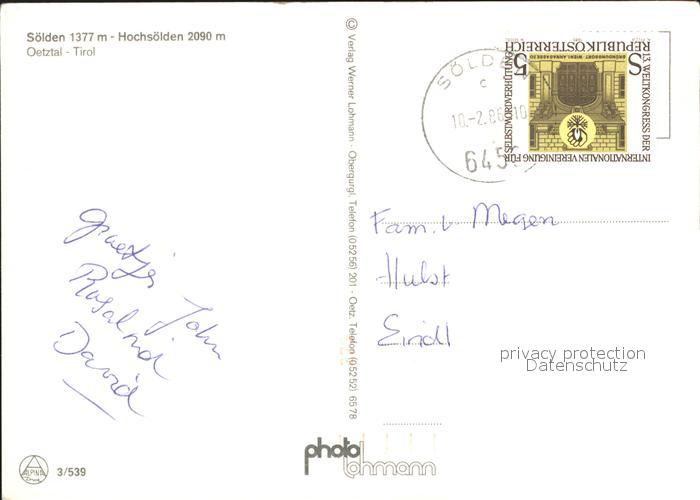 Sölden 1377 m - Hochsölden 2090 m
Oetztal - Tirol
© Verlag Werner Lohmann - Obergurgl, Telefon (05256) 201 - Oetz, Telefon (05252) 6578
SÖLDEN
c
10.-2.86-10
645
S 5
REPUBLIK ÖSTERREICH
13. WELTKONGRESS DER
INTERNATIONALEN VEREINIGUNG FÜR
SELBSTMORDVERHÜTUNG
GRÜNDUNGSORT WIEN
Groetjes John
Rosalind
David
Fam. v Megen
Hulst
privacy protection
Datenschutz
photo
lohmann
ALPINA
3/539